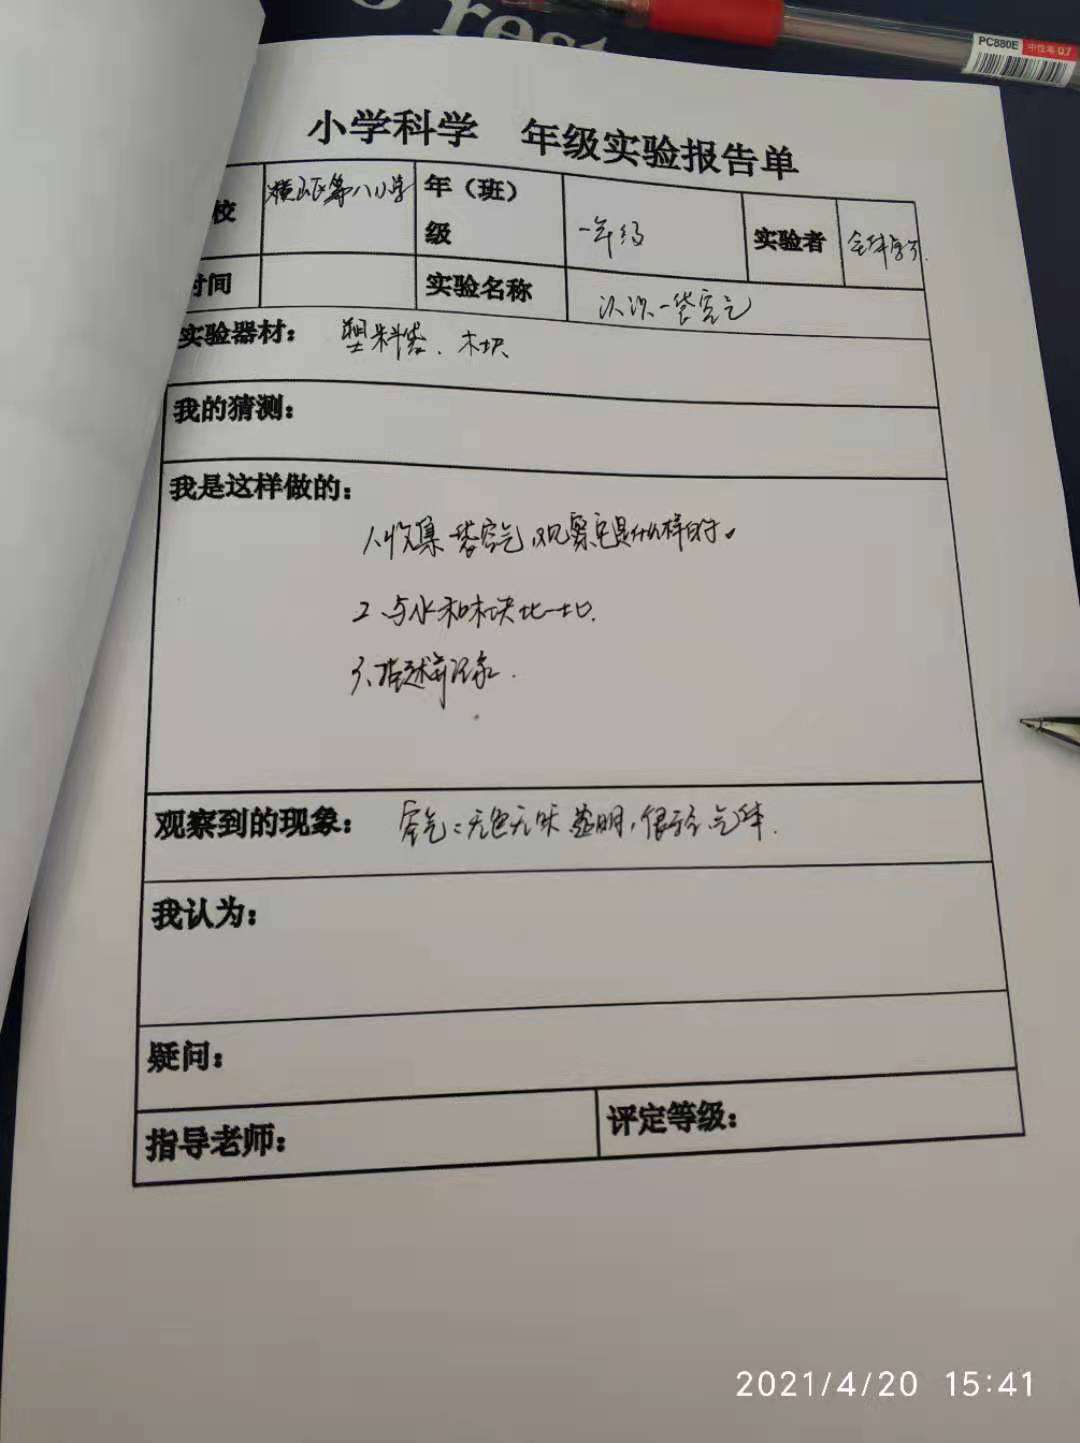 rest
PC880E 中性笔 0.7
小学科学 年级实验报告单
校 横山区第八小学 年（班）级 一年级 实验者 全体学生
时间 实验名称 认识一袋空气
实验器材： 塑料袋、木块
我的猜测：
我是这样做的：
1、收集一袋空气，观察它是什么样的。
2、与水和木块比一比.
3、描述并记录.
观察到的现象： 空气：无色无味 透明，很轻 气体.
我认为：
疑问：
指导老师： 评定等级：
2021/4/20 15:41